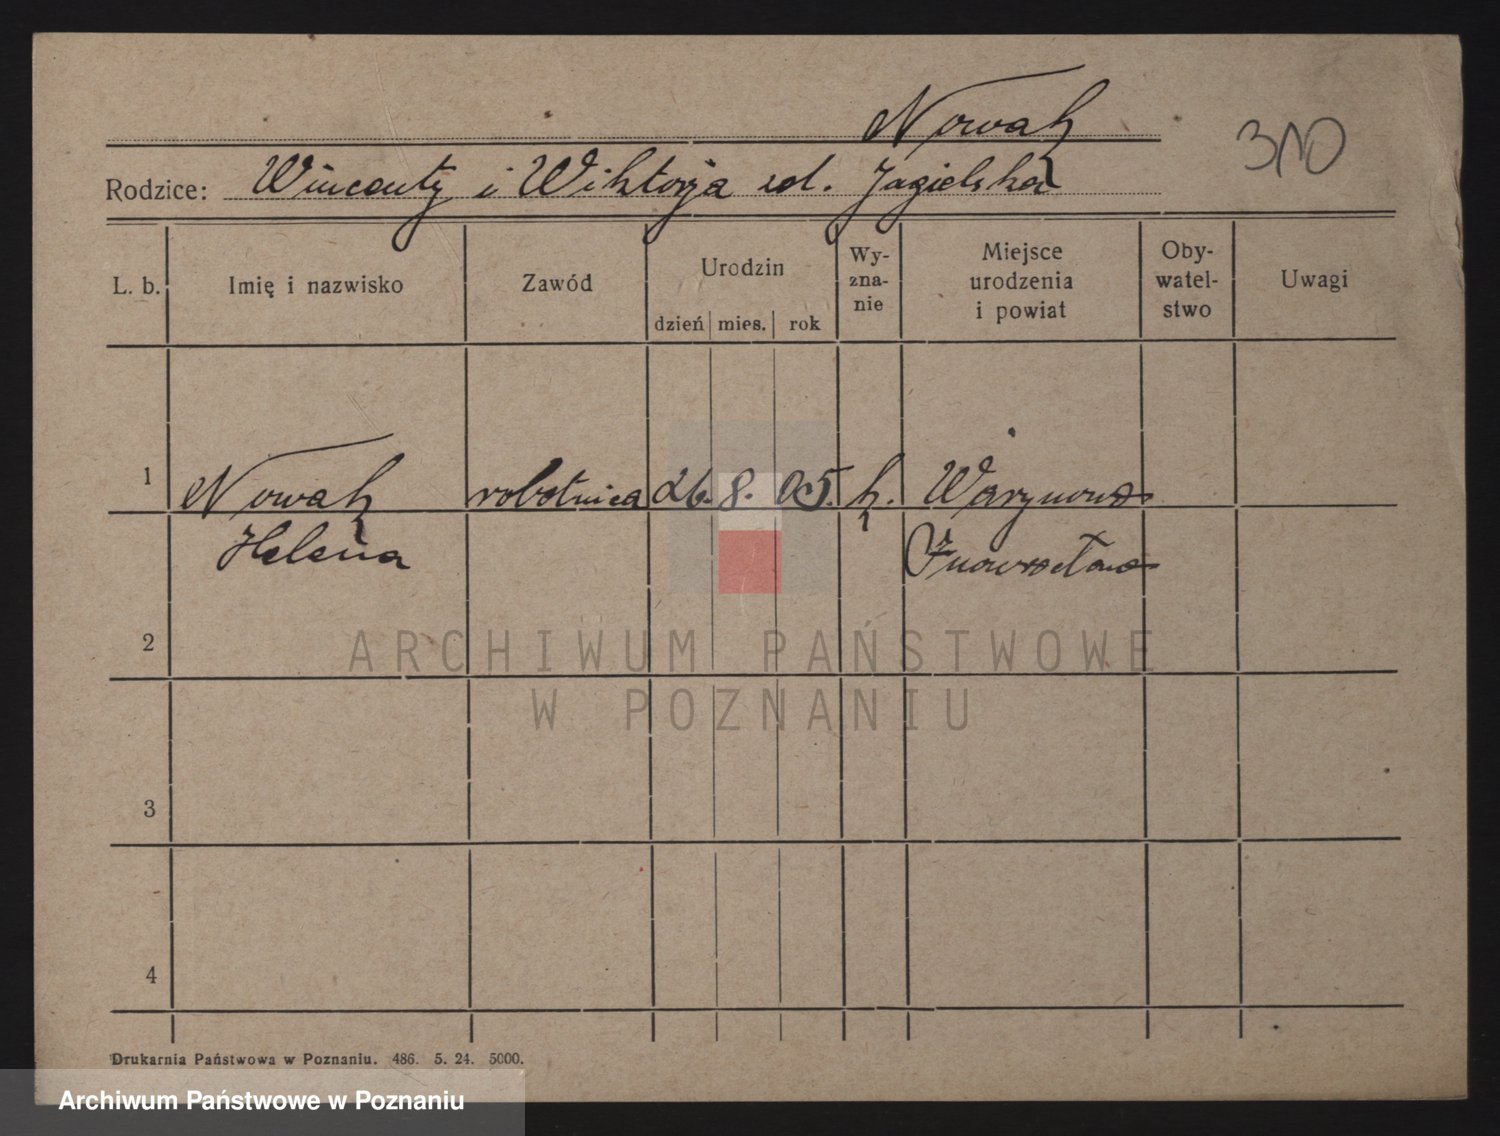 Nowak
310
Rodzice: Wincenty i Wiktorja zd. Jagielska
L. b.
Imię i nazwisko
Zawód
Urodzin
dzień mies. rok
Wy-
zna-
nie
Miejsce
urodzenia
i powiat
Oby-
watel-
stwo
Uwagi
1 Nowak robotnica 26. 8. 05. k.
Helena Inowrocław
2
3
4
ARCHIWUM PAŃSTWOWE
W POZNANIU
Drukarnia Państwowa w Poznaniu. 486. 5. 24. 5000.
Archiwum Państwowe w Poznaniu